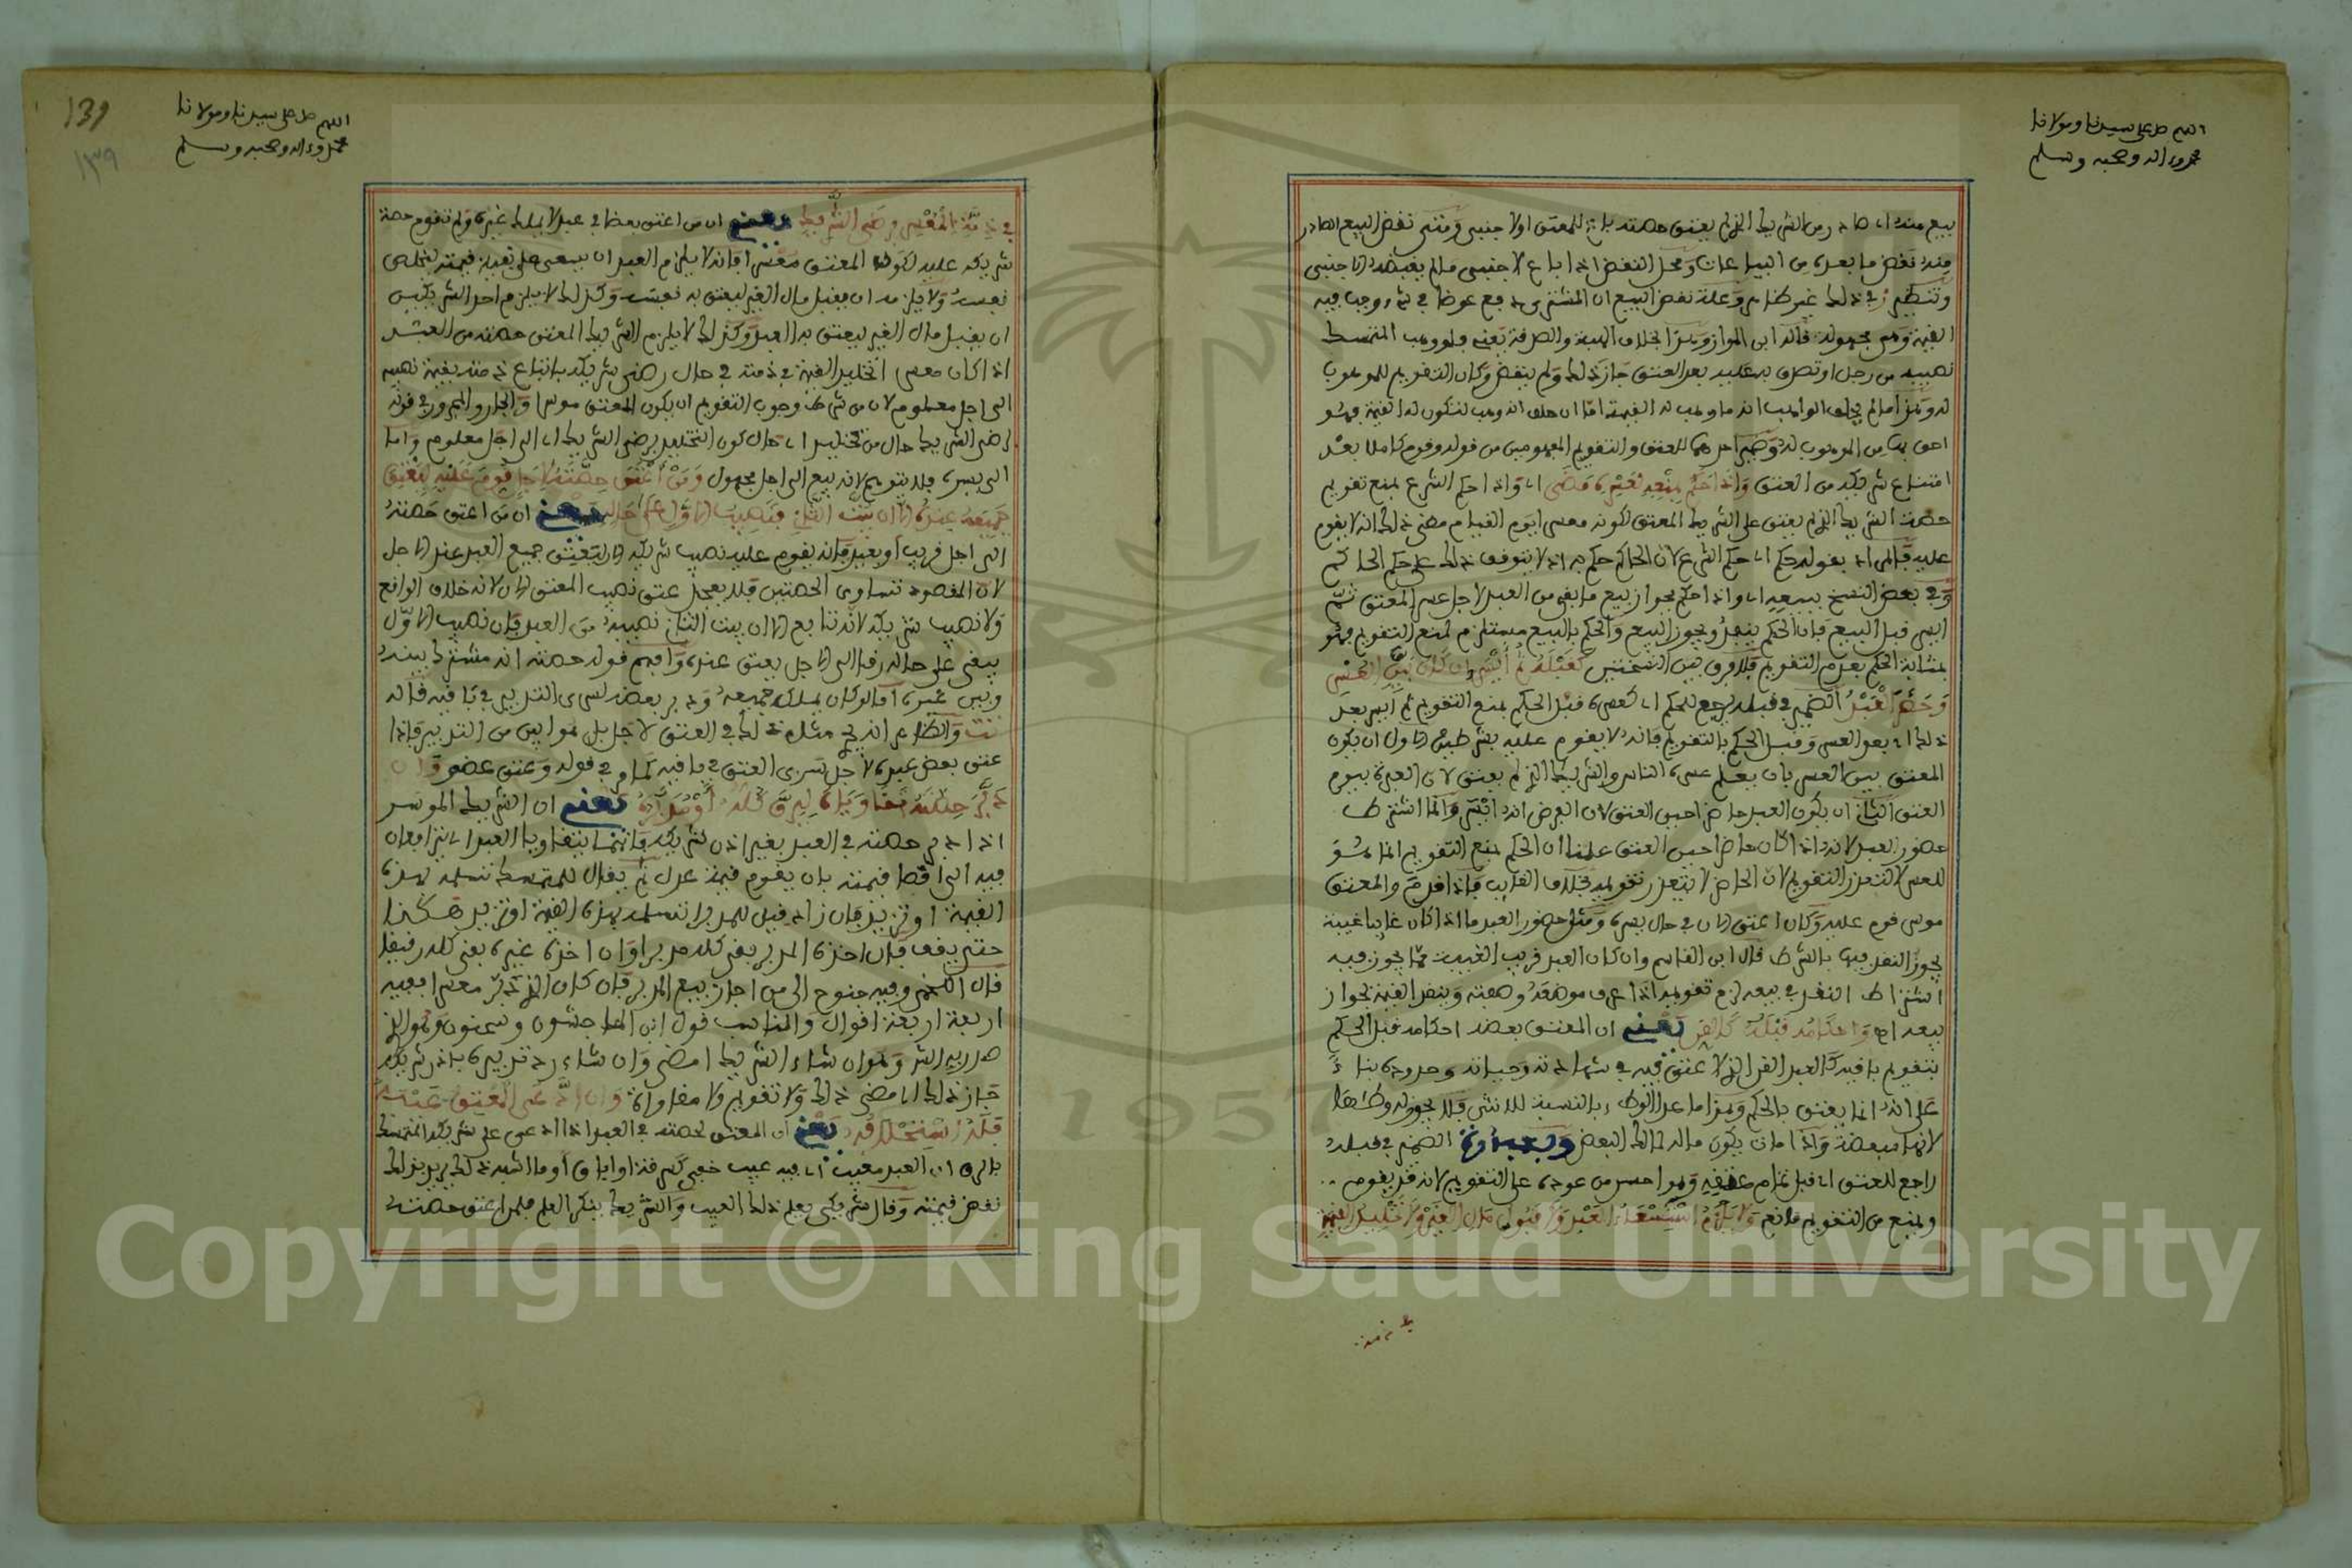 اللهم صل على سيدنا ومولانا
محمد وءاله وصحبه وسلم
بيع منه اي صادر من الشريك الذي لم يعتق حصته باع للمعتق او لاجنبي ومتى نقض البيع الصادر
منه نقض ما بعده من البياعات ومحل النقض اذا باع لاجنبي ما لم
في ذلك غير ظاهر وعلة نقض البيع ان المشتري دفع عوضا في شيء وجب فيه
القيمة وهي مجهولة قاله ابن المواز وهذا بخلاف الهبة والصدقة يعني فلو وهب المتمسك
نصيبه من رجل او تصدق به عليه بعد العتق جاز ذلك ولم ينقض وكان التقويم للموهوب
له وهذا ما لم يحلف الواهب انه ما وهب له القيمة اما ان حلف انه وهب لتكون له القيمة فهو
احق بها من الموهوب له
امتناع شريكه من العتق واذا حكم بمنعه لعسره مضى اي واذا حكم الشرع بمنع تقويم
حصة الشريك الذي لم يعتق على الشريك المعتق لكونه معسرا يوم القيام مضى ذلك انه لا يقوم
عليه
وفي بعض النسخ ببيعه اي واذا حكم بجواز بيع ما بقي من العبد لاجل عسر المعتق ثم
ايسر قبل البيع فان الحكم ينفذ ويجوز البيع والحكم بالبيع مستلزم لمنع التقويم فهو
بمثابة الحكم بعدم التقويم فلا فرق بين النسختين كقبله ثم ايسر ان كان بين العسر
وحضر العبد الضمير في قبله يرجع للحكم اي كعسره قبل الحكم بمنع التقويم ثم ايسر بعد
ذلك اي بعد العسر وقبل الحكم بالتقويم فانه لا يقوم عليه بشرطين الاول ان يكون
المعتق بين العسر بان يعلم عسره الناس والشريك الذي لم يعتق لان العبرة بيوم
العتق الثاني ان يكون العبد حاضرا حين العتق لان الفرض انه ايسر وانما اشترط
حضور العبد لانه اذا كان حاضرا حين العتق علمنا ان الحكم بمنع التقويم انما هو
للعسر لا لتعذر التقويم لان الحاضر لا يتعذر تقويمه بخلاف الغايب فاذا قدم والمعتق
موسر قوم عليه وكان اعتق الان في حال يسره ومثل حضور العبد ما اذا كان غايبا غيبة
يجوز النقد فيها بالشرط قال ابن القاسم وان كان العبد قريب الغيبة مما يجوز فيه
اشتراط النقد في بيعه لزم تقويمه اذا عرف موضعه وصفته وينقد القيمة لجواز
بيعه اه واحكامه قبله كالقن يعني ان المعتق بعضه احكامه قبل الحكم
بتقويم باقيه كالعبد القن الذي لا عتق فيه في شهادته وجناياته وحدوده بناء
على انه انما يعتق بالحكم وهذا ما عدا الوطء بالنسبة للانثى فلا يجوز له وطئها
لانها مبعضة واذا مات يكون ماله لمالك البعض الضمير في قبله
راجع للعتق اي قبل تمام عتقه وهو احسن من عوده على التقويم لانه قد يقوم
ويمنع من التقويم مانع ولا يلزم استسعاء العبد ولا قبول مال الغير ولا تخليد القيمة
139
١٣٩
اللهم صل على سيدنا ومولانا
محمد وءاله وصحبه وسلم
في ذمة المعسر برضى الشريك يعني ان من اعتق بعضا في عبد لا يملك غيره ولم تقوم حصة
شريكه عليه لكون المعتق معسرا فانه لا يلزم العبد ان يسعى في قيمته ليخلص
نفسه ولا يلزمه ان يقبل مال الغير ليعتق به نفسه وكذلك لا يلزم احد الشريكين
ان يقبل مال الغير ليعتق به العبد وكذلك لا يلزم الشريك المعتق حصته من العبد
اذا كان معسرا تخليد القيمة في ذمته في حال رضى شريكه باتباع ذمته بقيمة نصيبه
الى اجل معلوم لان من شرط وجوب التقويم ان يكون المعتق موسرا والجار والمجرور في قوله
برضى الشريك حال من تخليد اي حال كون التخليد برضى الشريك اي الى اجل معلوم واما
الى يسره فلا تقويم لانه بيع الى اجل مجهول ومن اعتق حصته لاجل قوم عليه ليعتق
جميعه عنده الا ان يبت الثاني فنصيب الاول على حاله يعني ان من اعتق حصته
الى اجل قريب او بعيد فانه يقوم عليه نصيب شريكه الان ليعتق جميع العبد عند الاجل
لان المقصود تساوي الحصتين فلا يعجل عتق نصيب المعتق الان لانه خلاف الواقع
ولا نصيب شريكه لانه تابع الا ان يبت الثاني نصيبه من العبد فان نصيب الاول
يبقى على حاله رقا الى الاجل يعتق عنده وافهم قوله حصته انه مشترك بينه
وبين غيره اما لو كان يملك جميعه ودبر بعضه لسرى التدبير في باقيه قاله
تت والظاهر انه يجري مثله ذلك في العتق لاجل بل هو ابين من التدبير فاذا
عتق بعض عبده لاجل سرى العتق في باقيه كما مر في قوله وعتق عضو وان
دبر حصته تقاوياه ليرق كله او يدبر يعني ان الشريك الموسر
اذا دبر حصته في العبد بغير اذن شريكه فانهما يتقاويا العبد اي يتزايدان
فيه الى اقصا قيمته بان يقوم قيمة عدل ثم يقال للمتمسك تسلمه بهذه
القيمة او تزيد فان زاد قيل للمدبر اتسلمه بهذه القيمة او تزيد هكذا
حتى يقف فان اخذه المدبر بقي كله مدبرا وان اخذه غيره بقي كله رقيقا
قال اللخمي وفيه جنوح الى من اجاز بيع المدبر فان كان الذي دبر معسرا ففيه
اربعة اقوال والمناسب قول ابن الماجشون وسحنون وهو الذي
صدر به الشر وهو ان شاء الشريك امضى وان شاء رد تدبيره باذن شريكه
جاز ذلك اي مضى ذلك ولا تقويم ولا مقاواة وان ادعى المعتق عيبه
فله استحلافه يعني ان المعتق لحصته في العبد اذا ادعى على شريكه المتمسك
بالرق ان العبد معيبا اي فيه عيب خفي كسرقة او اباق او ما اشبه ذلك يريد بذلك
نقض قيمته وقال شريكي يعلم ذلك العيب والشريك ينكر العلم فلمن اعتق حصته
Copyright © King Saud University
1957